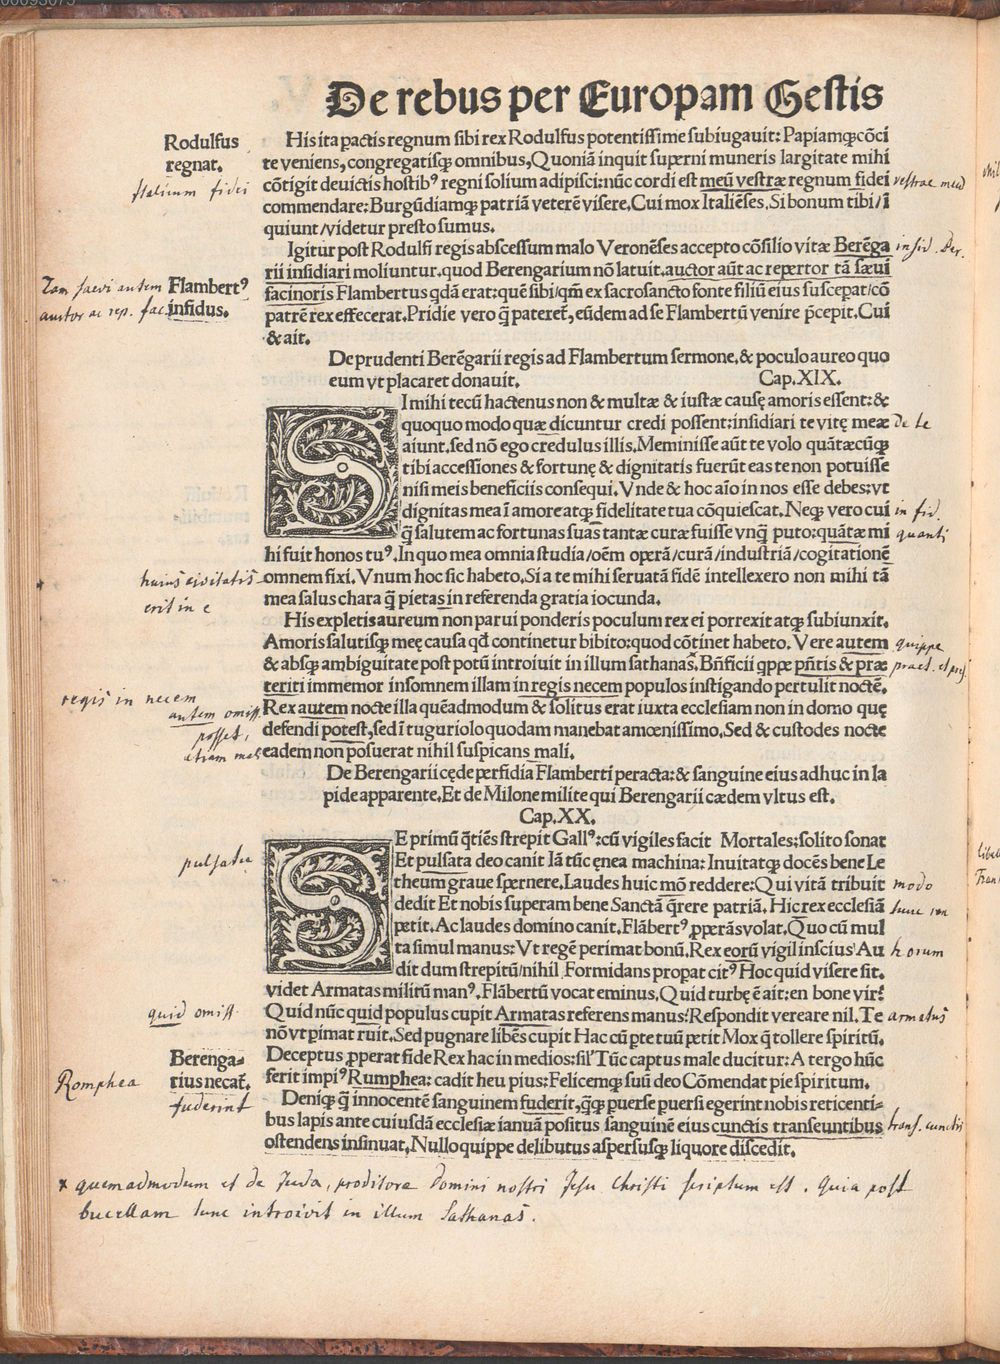 De rebus per Europam Gestis
Rodulfus
regnat.
Italicum fidei
His ita pactis regnum sibi rex Rodulfus potentissime subiugauit: Papiamqꝫ cōci
te veniens, congregatisqꝫ omnibus, Quoniā inquit superni muneris largitate mihi
cōtigit deuictis hostibꝰ regni solium adipisci: nūc cordi est meū vestræ regnum fidei
vestrae meū
commendare: Burgūdiamqꝫ patriā veterē visere. Cui mox Italiēses. Si bonum tibi/ī
quiunt/videtur presto sumus.
Igitur post Rodulfi regis abscessum malo Veronēses accepto cōsilio vitæ Berēga
insid. Ber.
rii insidiari moliuntur. quod Berengarium nō latuit. auctor aūt ac repertor tā sæui
Tam saevi autem
Flambertꝰ
infidus.
auctor ac rep. fac.
facinoris Flambertus qdā erat: quē sibi/qm̄ ex sacrosancto fonte filiū eius susceperat/cō
patrē rex effecerat. Pridie vero q̄ pateret, eūdem ad se Flambertū venire p̄cepit. Cui
& ait.
De prudenti Berēgarii regis ad Flambertum sermone. & poculo aureo quo
eum vt placaret donauit. Cap. XIX.
SI mihi tecū hactenus non & multæ & iustæ causę amoris essent: &
quoquo modo quæ dicuntur credi possent: insidiari te vitę meæ
de te
aiunt. sed nō ego credulus illis. Meminisse aūt te volo quātæcūqꝫ
tibi accessiones & fortunę & dignitatis fuerūt eas te non potuisse
nisi meis beneficiis consequi. Vnde & hoc aīo in nos esse debes: vt
dignitas mea ī amore atqꝫ fidelitate tua cōquiescat. Neqꝫ vero cui
in fid.
q̄ salutem ac fortunas suas tantæ curæ fuisse vnq̄ puto: quātæ mi
quanti
hi fuit honos tuꝰ. In quo mea omnia studia/oēm operā/curā/industriā/cogitationē
huius civitatis
omnem fixi. Vnum hoc sic habeto. Si a te mihi seruatā fidē intellexero non mihi tā
erit in e
mea salus chara q̄ pietas in referenda gratia iocunda.
His expletis aureum non parui ponderis poculum rex ei porrexit atqꝫ subiunxit.
Amoris salutisqꝫ meę causa qd̄ continetur bibito: quod cōtinet habeto. Vere autem
quippe
& absqꝫ ambiguitate post potū introiuit in illum sathanas.ˣ Bn̄ficii qppe pn̄tis & præ
praet. et pres
teriti immemor insomnem illam in regis necem populos instigando pertulit noctē.
regis in necem
Rex autem nocte illa quēadmodum & solitus erat iuxta ecclesiam non in domo quę
autem omiss.
defendi potest, sed ī tuguriolo quodam manebat amœnissimo. Sed & custodes nocte
posset,
eadem non posuerat nihil suspicans mali.
etiam mal
De Berengarii cęde perfidia Flamberti peracta: & sanguine eius adhuc in la
pide apparente. Et de Milone milite qui Berengarii cædem vltus est.
Cap. XX.
SE primū q̄tiēs strepit Gallꝰ: cū vigiles facit Mortales: solito sonat
Et pulsata deo canit Iā tūc ęnea machina: Inuitatqꝫ docēs bene Le
pulsatu
theum graue spernere. Laudes huic mō reddere: Qui vitā tribuit
modo
dedit Et nobis superam bene Sanctā q̄rere patriā. Hic rex ecclesiā
petit. Ac laudes domino canit. Flābertꝰ p̱perās volat. Quo cū mul
ta simul manus: Vt regē perimat bonū. Rex eorū vigil inscius Au
horum
dit dum strepitū/nihil Formidans propat citꝰ Hoc quid visere sit.
videt Armatas militū manꝰ. Flābertū vocat eminus. Quid turbę ē ait: en bone vir:
Quid nūc quid populus cupit Armatas referens manus? Respondit vereare nil. Te
quid omiss.
armatus
nō vt p̱imat ruit. Sed pugnare libēs cupit Hac cū p̱te tuū petit Mox q̄ tollere spiritū.
Berenga-
rius necat.
Deceptus p̱perat fide Rex hac in medios: sil' Tūc captus male ducitur: A tergo hūc
Romphea
ferit impiꝰ Rumphea: cadit heu pius: Felicemqꝫ suū deo Cōmendat pie spiritum.
fuderint
Deniqꝫ q̄ innocentē sanguinem fuderit, q̄qꝫ p̱uerse p̱uersi egerint nobis reticenti-
bus lapis ante cuiusdā ecclesiæ ianuā positus sanguinē eius cunctis transeuntibus
trans. cunctis
ostendens insinuat. Nullo quippe delibutus aspersusqꝫ liquore discedit.
x quemadmodum et de Juda, proditore Domini nostri Jesu Christi scriptum est. Quia post
bucellam tunc introivit in illum Sathanas.